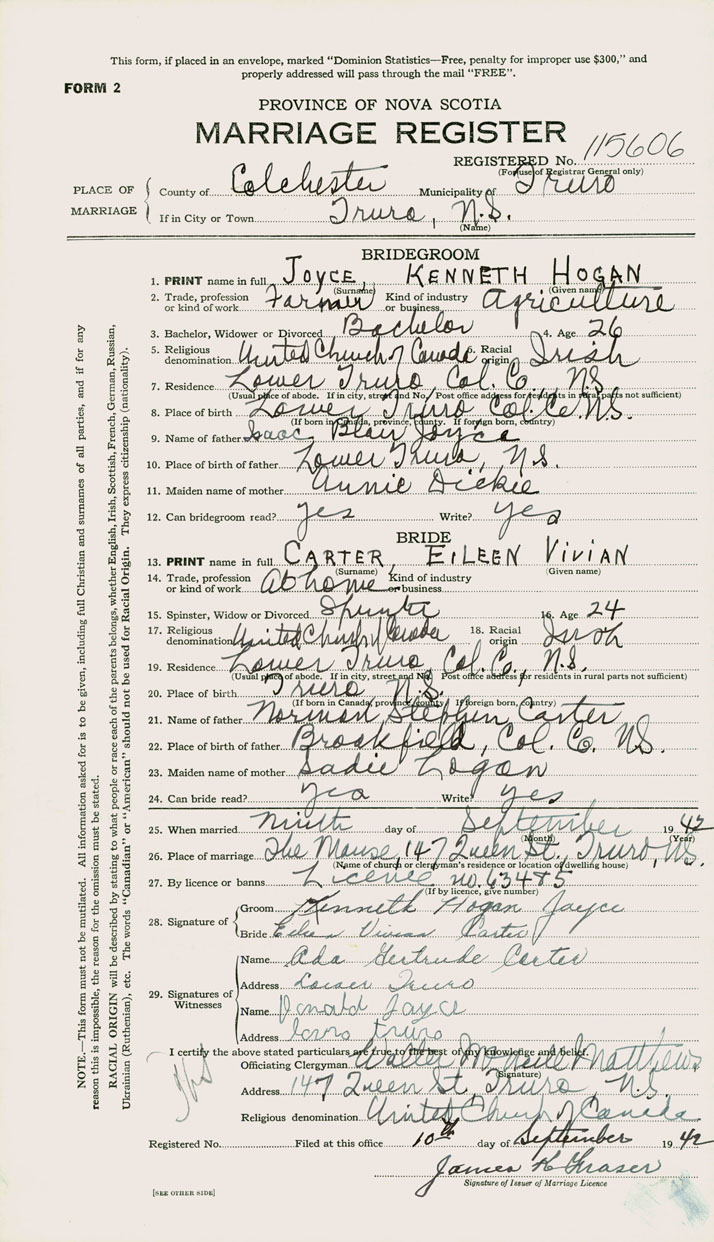 This form, if placed in an envelope, marked "Dominion Statistics—Free, penalty for improper use $300," and
properly addressed will pass through the mail "FREE".
FORM 2
PROVINCE OF NOVA SCOTIA
MARRIAGE REGISTER
REGISTERED No. 115606
(For use of Registrar General only)
PLACE OF MARRIAGE
County of Colchester Municipality of Truro
If in City or Town Truro, N.S.
(Name)
BRIDEGROOM
1. PRINT name in full JOYCE, KENNETH HOGAN
(Surname) (Given name)
2. Trade, profession or kind of work Farmer Kind of industry or business Agriculture
3. Bachelor, Widower or Divorced Bachelor 4. Age 26
5. Religious denomination United Church of Canada 6. Racial origin Irish
7. Residence Lower Truro, Col. Co. N.S.
(Usual place of abode. If in city, street and No. Post office address for residents in rural parts not sufficient)
8. Place of birth Lower Truro Col. Co. N.S.
(If born in Canada, province, county. If foreign born, country)
9. Name of father Isaac Blair Joyce
10. Place of birth of father Lower Truro, N.S.
11. Maiden name of mother Annie Dickie
12. Can bridegroom read? yes Write? yes
BRIDE
13. PRINT name in full CARTER, EILEEN VIVIAN
(Surname) (Given name)
14. Trade, profession or kind of work At home Kind of industry or business
15. Spinster, Widow or Divorced Spinster 16. Age 24
17. Religious denomination United Church of Canada 18. Racial origin Irish
19. Residence Lower Truro, Col. Co., N.S.
(Usual place of abode. If in city, street and No. Post office address for residents in rural parts not sufficient)
20. Place of birth Truro N.S.
(If born in Canada, province, county. If foreign born, country)
21. Name of father Norman Stephen Carter
22. Place of birth of father Brookfield, Col. Co. N.S.
23. Maiden name of mother Sadie Logan
24. Can bride read? yes Write? yes
25. When married Ninth day of September 1942
(Month) (Year)
26. Place of marriage The Manse, 147 Queen St., Truro, N.S.
(Name of church or clergyman's residence or location of dwelling house)
27. By licence or banns Licence no. 63485
(If by licence, give number)
28. Signature of
Groom Kenneth Hogan Joyce
Bride Eileen Vivian Carter
29. Signatures of Witnesses
Name Ada Gertrude Carter
Address Lower Truro
Name Donald Joyce
Address Lower Truro
I certify the above stated particulars are true to the best of my knowledge and belief.
Officiating Clergyman Walter McNeill Matthews
(Signature)
Address 147 Queen St, Truro N.S.
Religious denomination United Church of Canada
Registered No. Filed at this office 10th day of September 1942
James H Fraser
Signature of Issuer of Marriage Licence
[SEE OTHER SIDE]
NOTE.—This form must not be mutilated. All information asked for is to be given, including full Christian and surnames of all parties, and if for any
reason this is impossible, the reason for the omission must be stated.
RACIAL ORIGIN will be described by stating to what people or race each of the parents belongs, whether English, Irish, Scottish, French, German, Russian,
Ukrainian (Ruthenian), etc. The words "Canadian" or "American" should not be used for Racial Origin. They express citizenship (nationality).